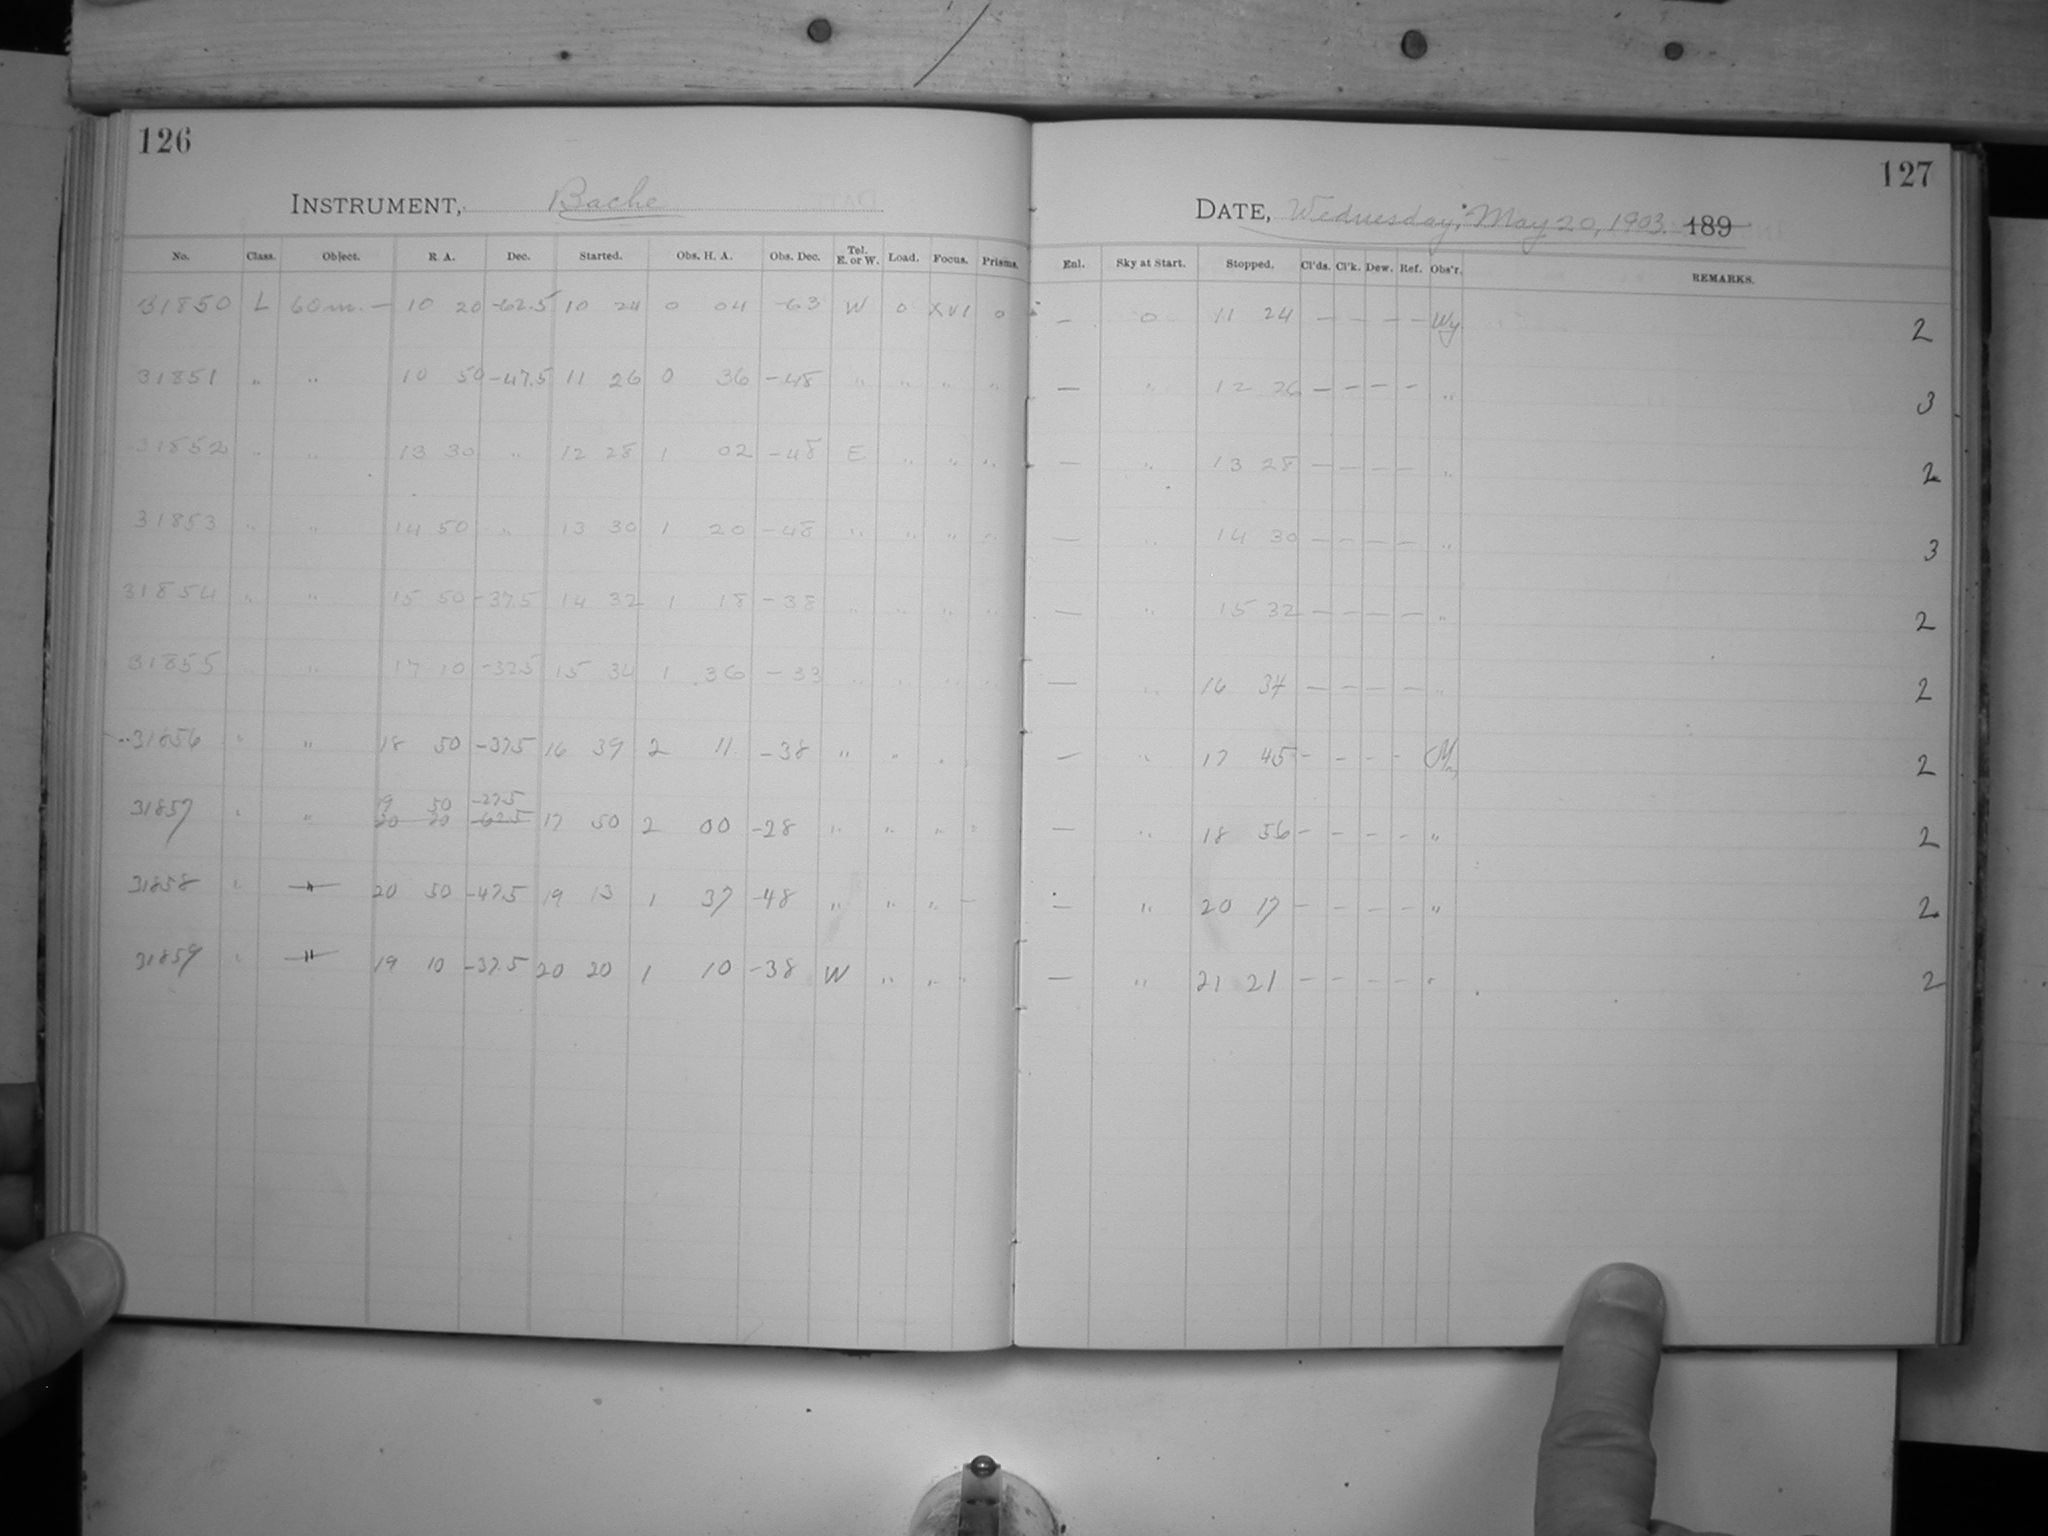 126
INSTRUMENT, Bache
No. Class. Object. R. A. Dec. Started. Obs. H. A. Obs. Dec. Tel. E. or W. Load. Focus. Prisms.
31850 L 60m. — 10 20 -62.5 10 24 0 04 -63 W 0 XVI 0
31851 " " 10 50 -47.5 11 26 0 36 -48 " " " "
31852 " " 13 30 " 12 28 1 02 -48 E " " "
31853 " " 14 50 " 13 30 1 20 -48 " " " "
31854 " " 15 50 -37.5 14 32 1 18 -38 " " " "
31855 " 17 10 -32.5 15 34 1 36 -33 " " " "
31856 " " 18 50 -37.5 16 39 2 11 -38 " " " "
19 50 -27.5
31857 " " 20 20 -62.5 17 50 2 00 -28 " " " "
31858 " " 20 50 -47.5 19 13 1 37 -48 " " " —
31859 " " 19 10 -37.5 20 20 1 10 -38 W " " "
127
DATE, Wednesday, May 20, 1903. 189
Enl. Sky at Start. Stopped. Cl'ds. Cl'k. Dew. Ref. Obs'r. REMARKS.
— 0 11 24 — — — — Wy 2
— " 12 26 — — — — " 3
— " 13 28 — — — — " 2
— " 14 30 — — — — " 3
— " 15 32 — — — — " 2
— " 16 34 — — — — " 2
— " 17 45 — — — — 2
— " 18 56 — — — — " 2
— " 20 17 — — — — " 2
— " 21 21 — — — — " 2